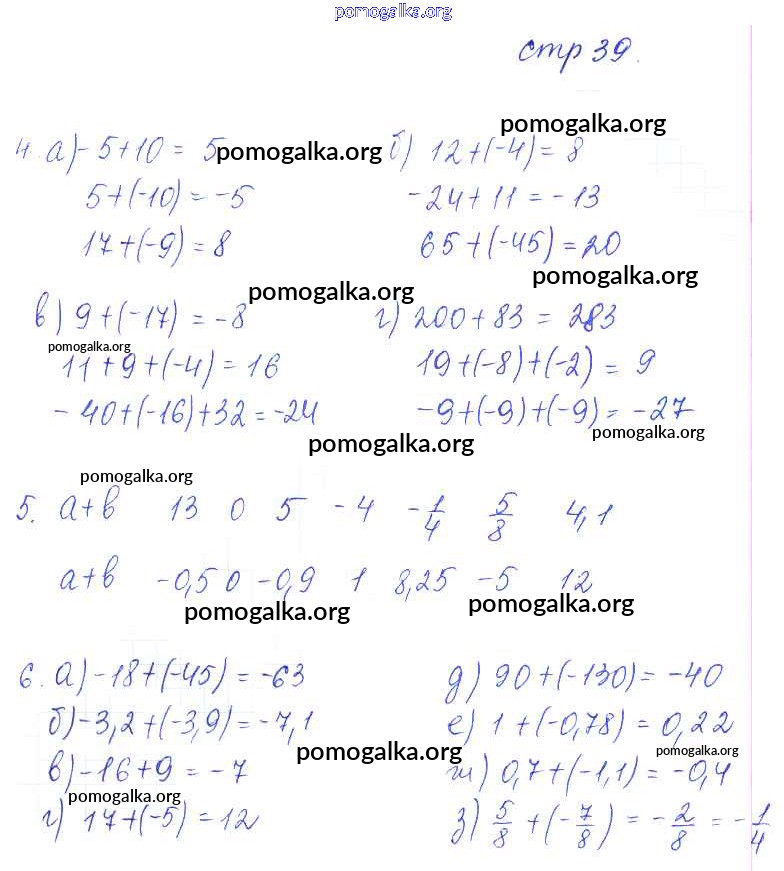 pomogalka.org
стр 39.
pomogalka.org
4. а) -5+10 = 5 pomogalka.org б) 12+(-4) = 8
5+(-10) = -5 -24+11 = -13
17+(-9) = 8 65+(-45) = 20
pomogalka.org
pomogalka.org
в) 9+(-17) = -8 г) 200+83 = 283
pomogalka.org
11+9+(-4) = 16 19+(-8)+(-2) = 9
-40+(-16)+32 = -24 -9+(-9)+(-9) = -27
pomogalka.org
pomogalka.org
pomogalka.org
5. a+b 13 0 5 -4 -1/4 5/8 4,1
a+b -0,5 0 -0,9 1 8,25 -5 12
pomogalka.org pomogalka.org
6. а) -18+(-45) = -63 д) 90+(-130) = -40
б) -3,2+(-3,9) = -7,1 е) 1+(-0,78) = 0,22
pomogalka.org pomogalka.org
в) -16+9 = -7 ж) 0,7+(-1,1) = -0,4
pomogalka.org
г) 17+(-5) = 12 з) 5/8 + (-7/8) = -2/8 = -1/4